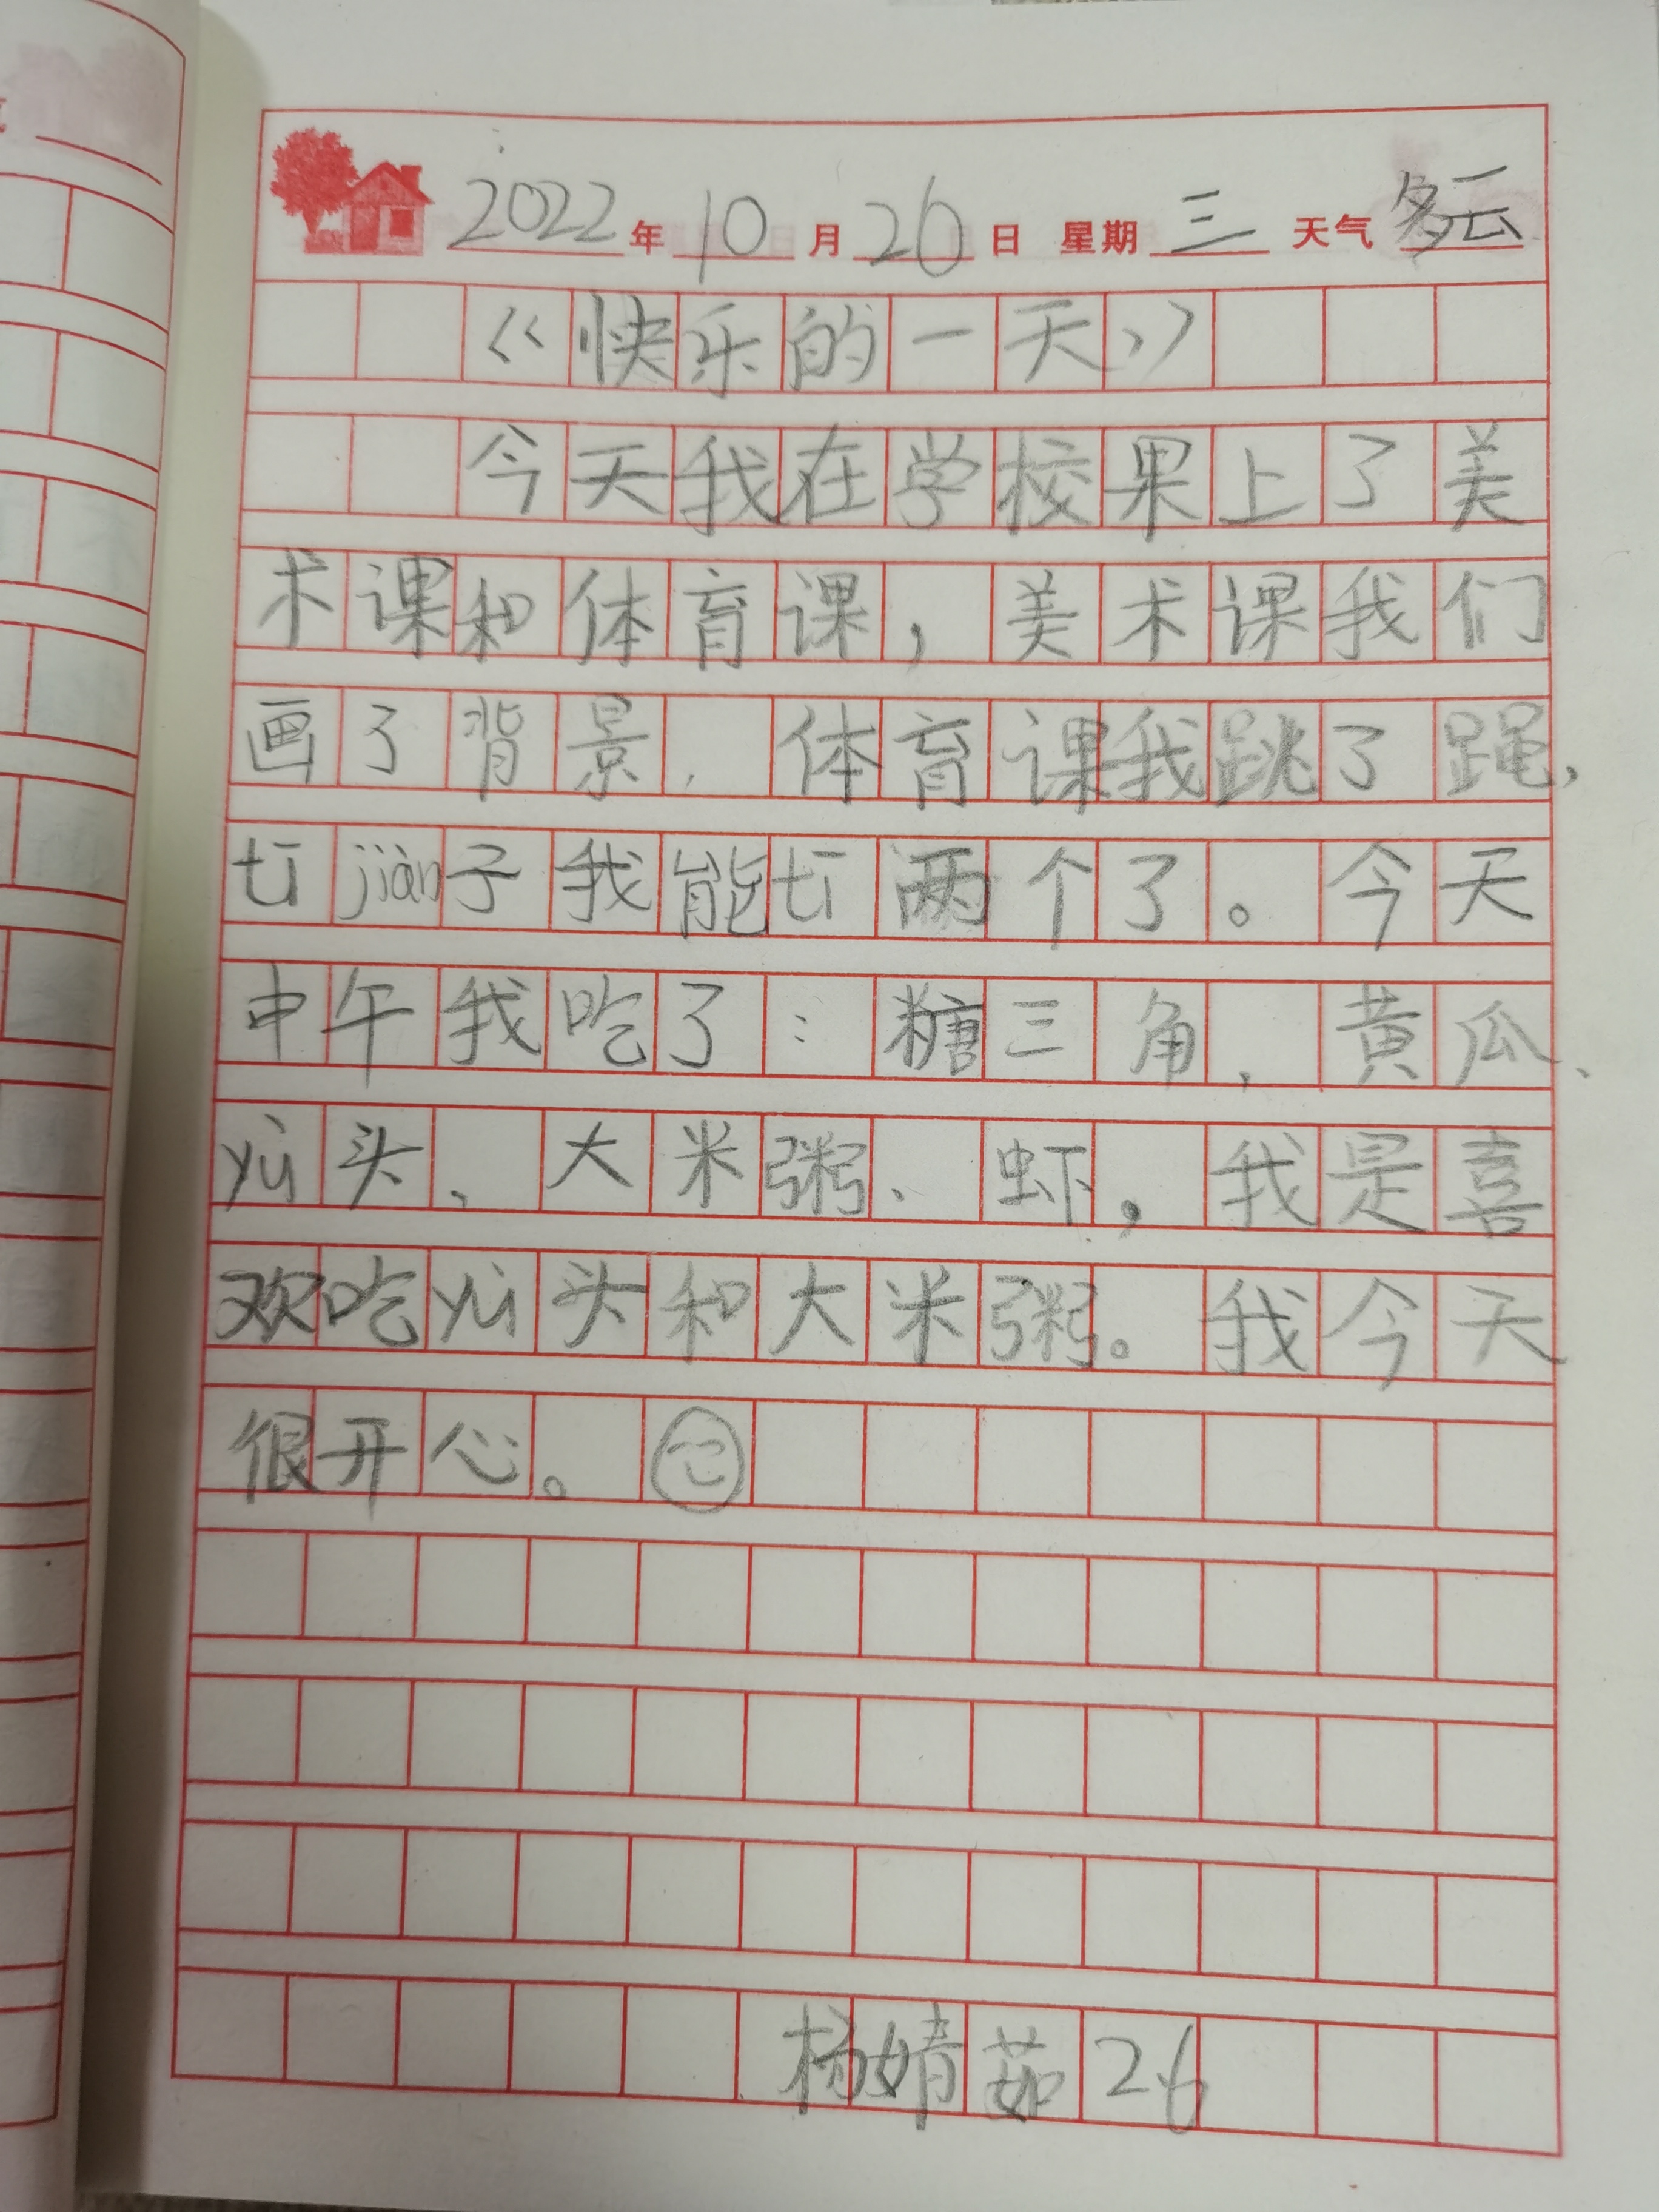 2022年10月26日 星期三 天气多云
《快乐的一天》
今天我在学校果上了美
术课和体育课，美术课我们
画了背景、体育课我跳了绳，
tījiàn子我能tī两个了。今天
中午我吃了：糖三角、黄瓜、
yú头、大米粥、虾，我是喜
欢吃yú头和大米粥。我今天
很开心。
杨婧茹26